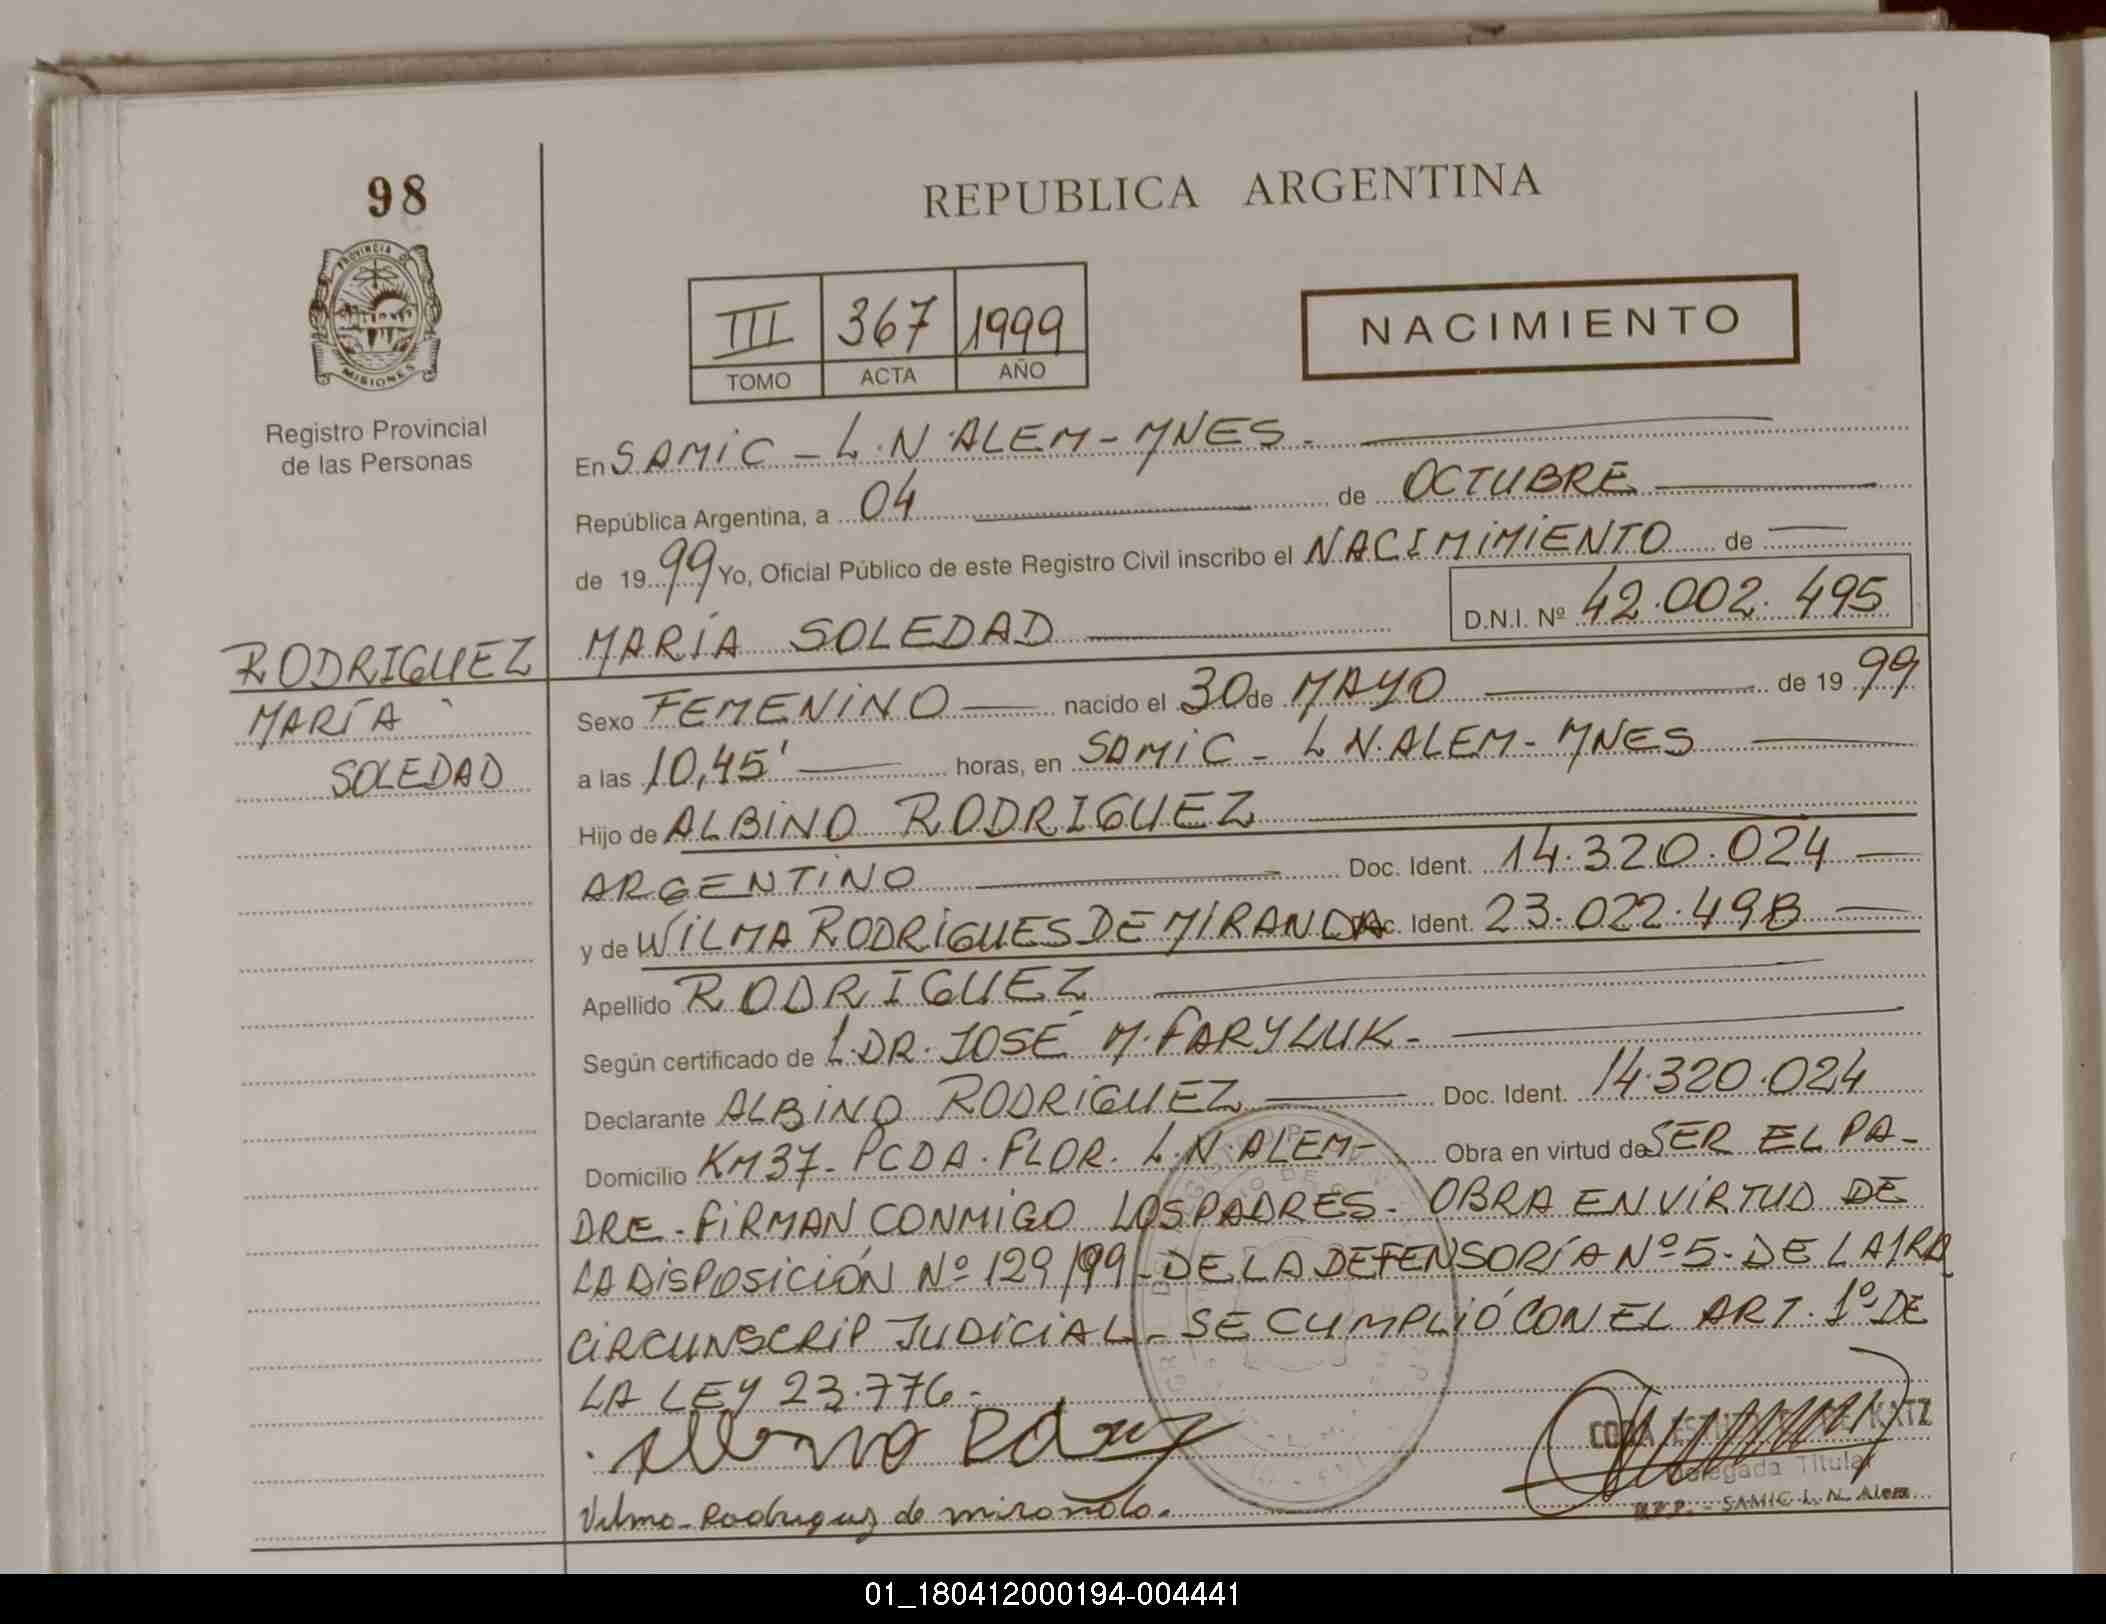 98
REPUBLICA ARGENTINA
PROVINCIA DE
MISIONES
III 367 1999
TOMO ACTA AÑO
NACIMIENTO
Registro Provincial
de las Personas
En SAMIC - L.N. ALEM - MNES -
República Argentina, a 04 de OCTUBRE
de 1999 Yo, Oficial Público de este Registro Civil inscribo el NACIMIMIENTO de
D.N.I. Nº 42.002.495
RODRIGUEZ MARÍA SOLEDAD
MARÍA
SOLEDAD
Sexo FEMENINO nacido el 30 de MAYO de 1999
a las 10,45' horas, en SAMIC - L N. ALEM - MNES
Hijo de ALBINO RODRIGUEZ
ARGENTINO Doc. Ident. 14.320.024
y de WILMA RODRIGUES DE MIRANDA Doc. Ident. 23.022.498
Apellido RODRIGUEZ
Según certificado de L. DR. JOSÉ M. FARYLUK -
Declarante ALBINO RODRIGUEZ Doc. Ident. 14.320.024
Domicilio KM 37 - PCDA. FLOR. L.N. ALEM - Obra en virtud de SER EL PA-
DRE - FIRMAN CONMIGO LOS PADRES - OBRA EN VIRTUD DE
LA DISPOSICIÓN Nº 129/99 - DE LA DEFENSORÍA Nº 5 - DE LA 1RA
CIRCUNSCRIP JUDICIAL - SE CUMPLIÓ CON EL ART. 1º DE
LA LEY 23.776 -
KATZ
Delegada Titular
R.P.P. - SAMIC L. N. Alem
Vilma - Rodriguez de miranda.
01_180412000194-004441